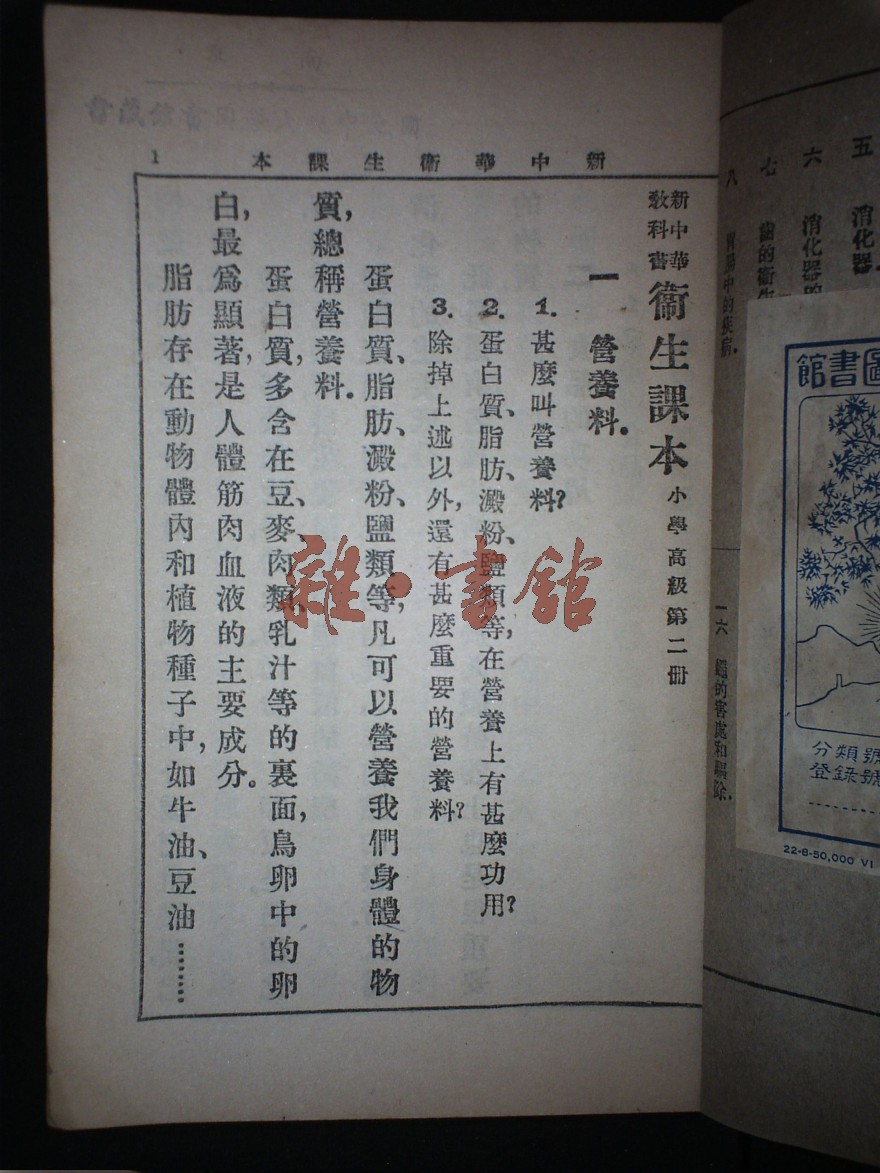 新中華衛生課本 1
新中華教科書 衞生課本 小學高級第二册
一 營養料。
1. 甚麼叫營養料?
2. 蛋白質、脂肪、澱粉、鹽類等,在營養上有甚麼功用?
3. 除掉上述以外,還有甚麼重要的營養料?
蛋白質、脂肪、澱粉、鹽類等,凡可以營養我們身體的物
質,總稱營養料。
蛋白質,多含在豆、麥、肉類、乳汁等的裏面,鳥卵中的卵
白,最爲顯著,是人體筋肉血液的主要成分。
脂肪存在動物體內和植物種子中,如牛油、豆油………
雜·書館
五 消化器
六 消化器的
七 齒的衛生
八 胃腸中的疾病。
圖書館
分類號
登錄號
22-8-50,000 VI